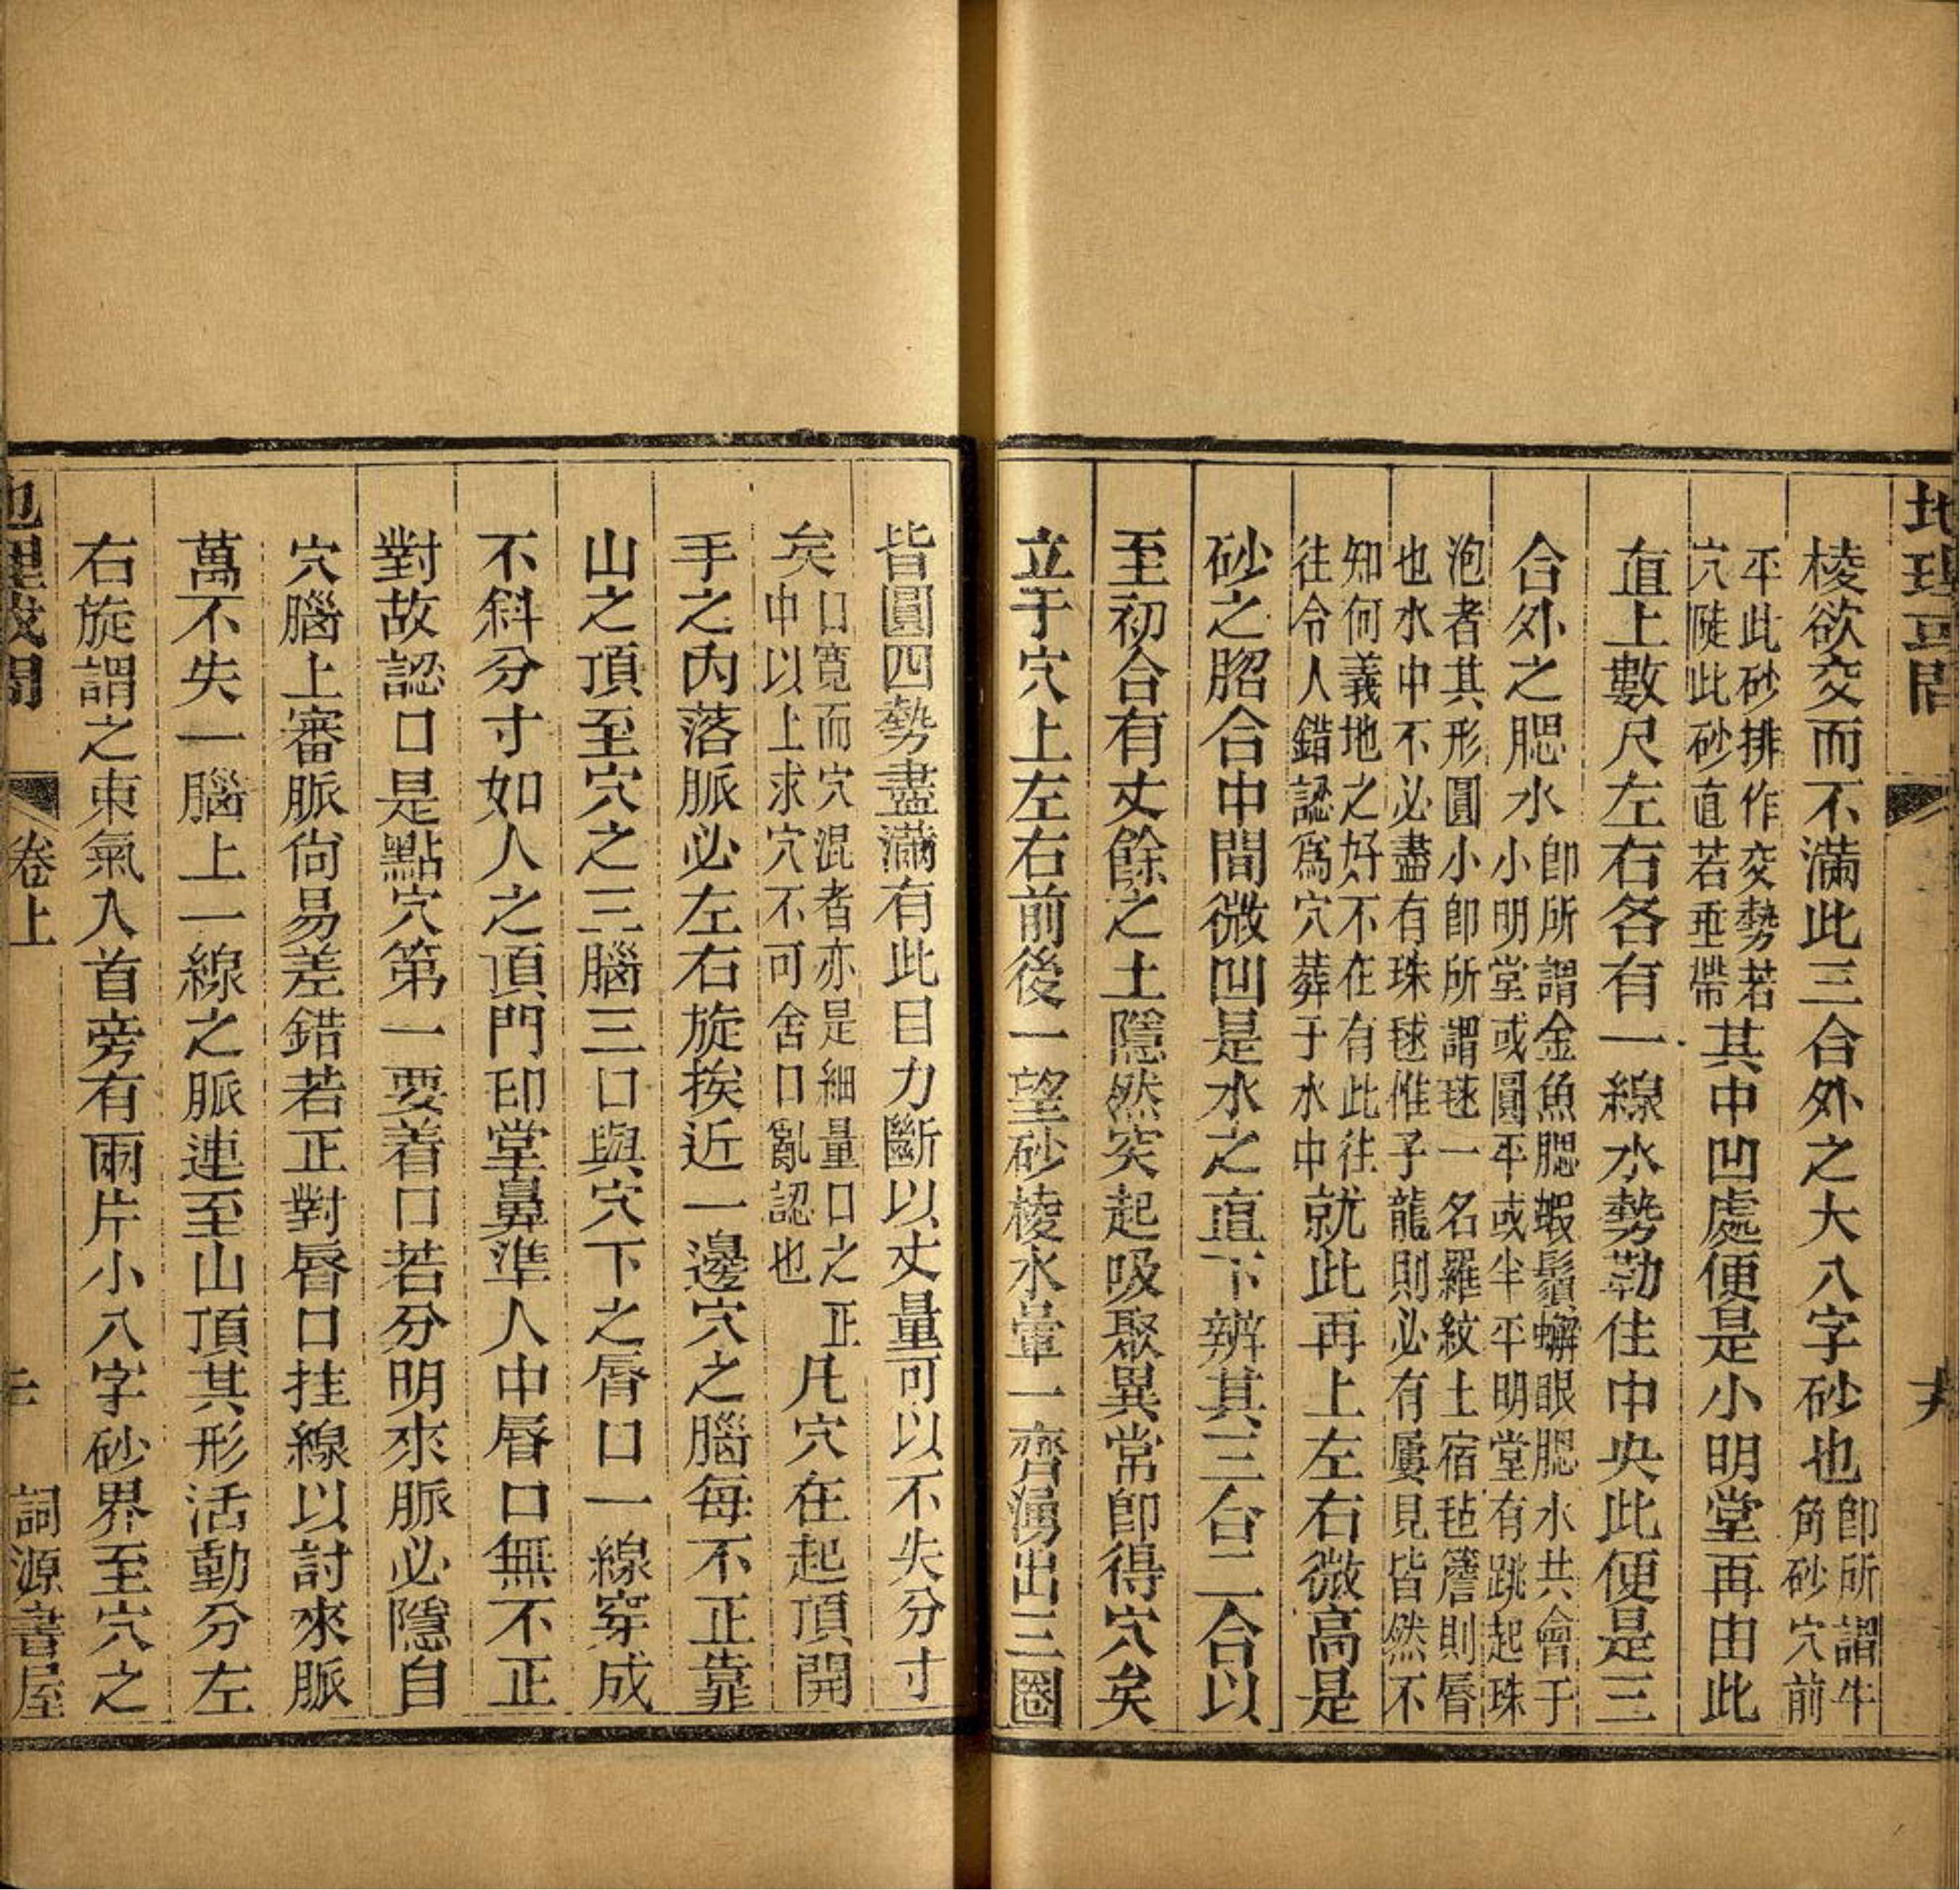 棱欲交而不滿此三合外之大八字砂也
卽所謂牛
角砂穴前
平此砂排作交勢若
穴陡此砂直若垂帶
其中凹處便是小明堂再由此
直上數尺左右各有一線水勢勒住中央此便是三
合外之腮水
卽所謂金魚腮蝦鬚蠏眼腮水共會于
小明堂或圓平或半平明堂有跳起珠
泡者其形圓小卽所謂毬一名羅紋土宿毡簷則唇
也水中不必盡有珠毬惟子龍則必有屢見皆然不
知何義地之好不在有此往
往令人錯認爲穴葬于水中
就此再上左右微高是
砂之䏮合中間微凹是水之直下辨其三台二合以
至初合有丈餘之土隱然突起吸聚異常卽得穴矣
立于穴上左右前後一望砂棱水暈一齊湧出三圈
皆圓四勢盡滿有此目力斷以丈量可以不失分寸
矣
口寬而穴混者亦是細量口之正
中以上求穴不可舍口亂認也
凡穴在起頂開
手之內落脈必左右旋挨近一邊穴之腦每不正靠
山之頂至穴之三腦三口與穴下之唇口一線穿成
不斜分寸如人之頂門印堂鼻準人中唇口無不正
對故認口是點穴第一要着口若分明來脈必隱自
穴腦上審脈尙易差錯若正對唇口挂線以討來脈
萬不失一腦上一線之脈連至山頂其形活動分左
右旋謂之束氣入首旁有兩片小八字砂界至穴之
卷上
詞源書屋